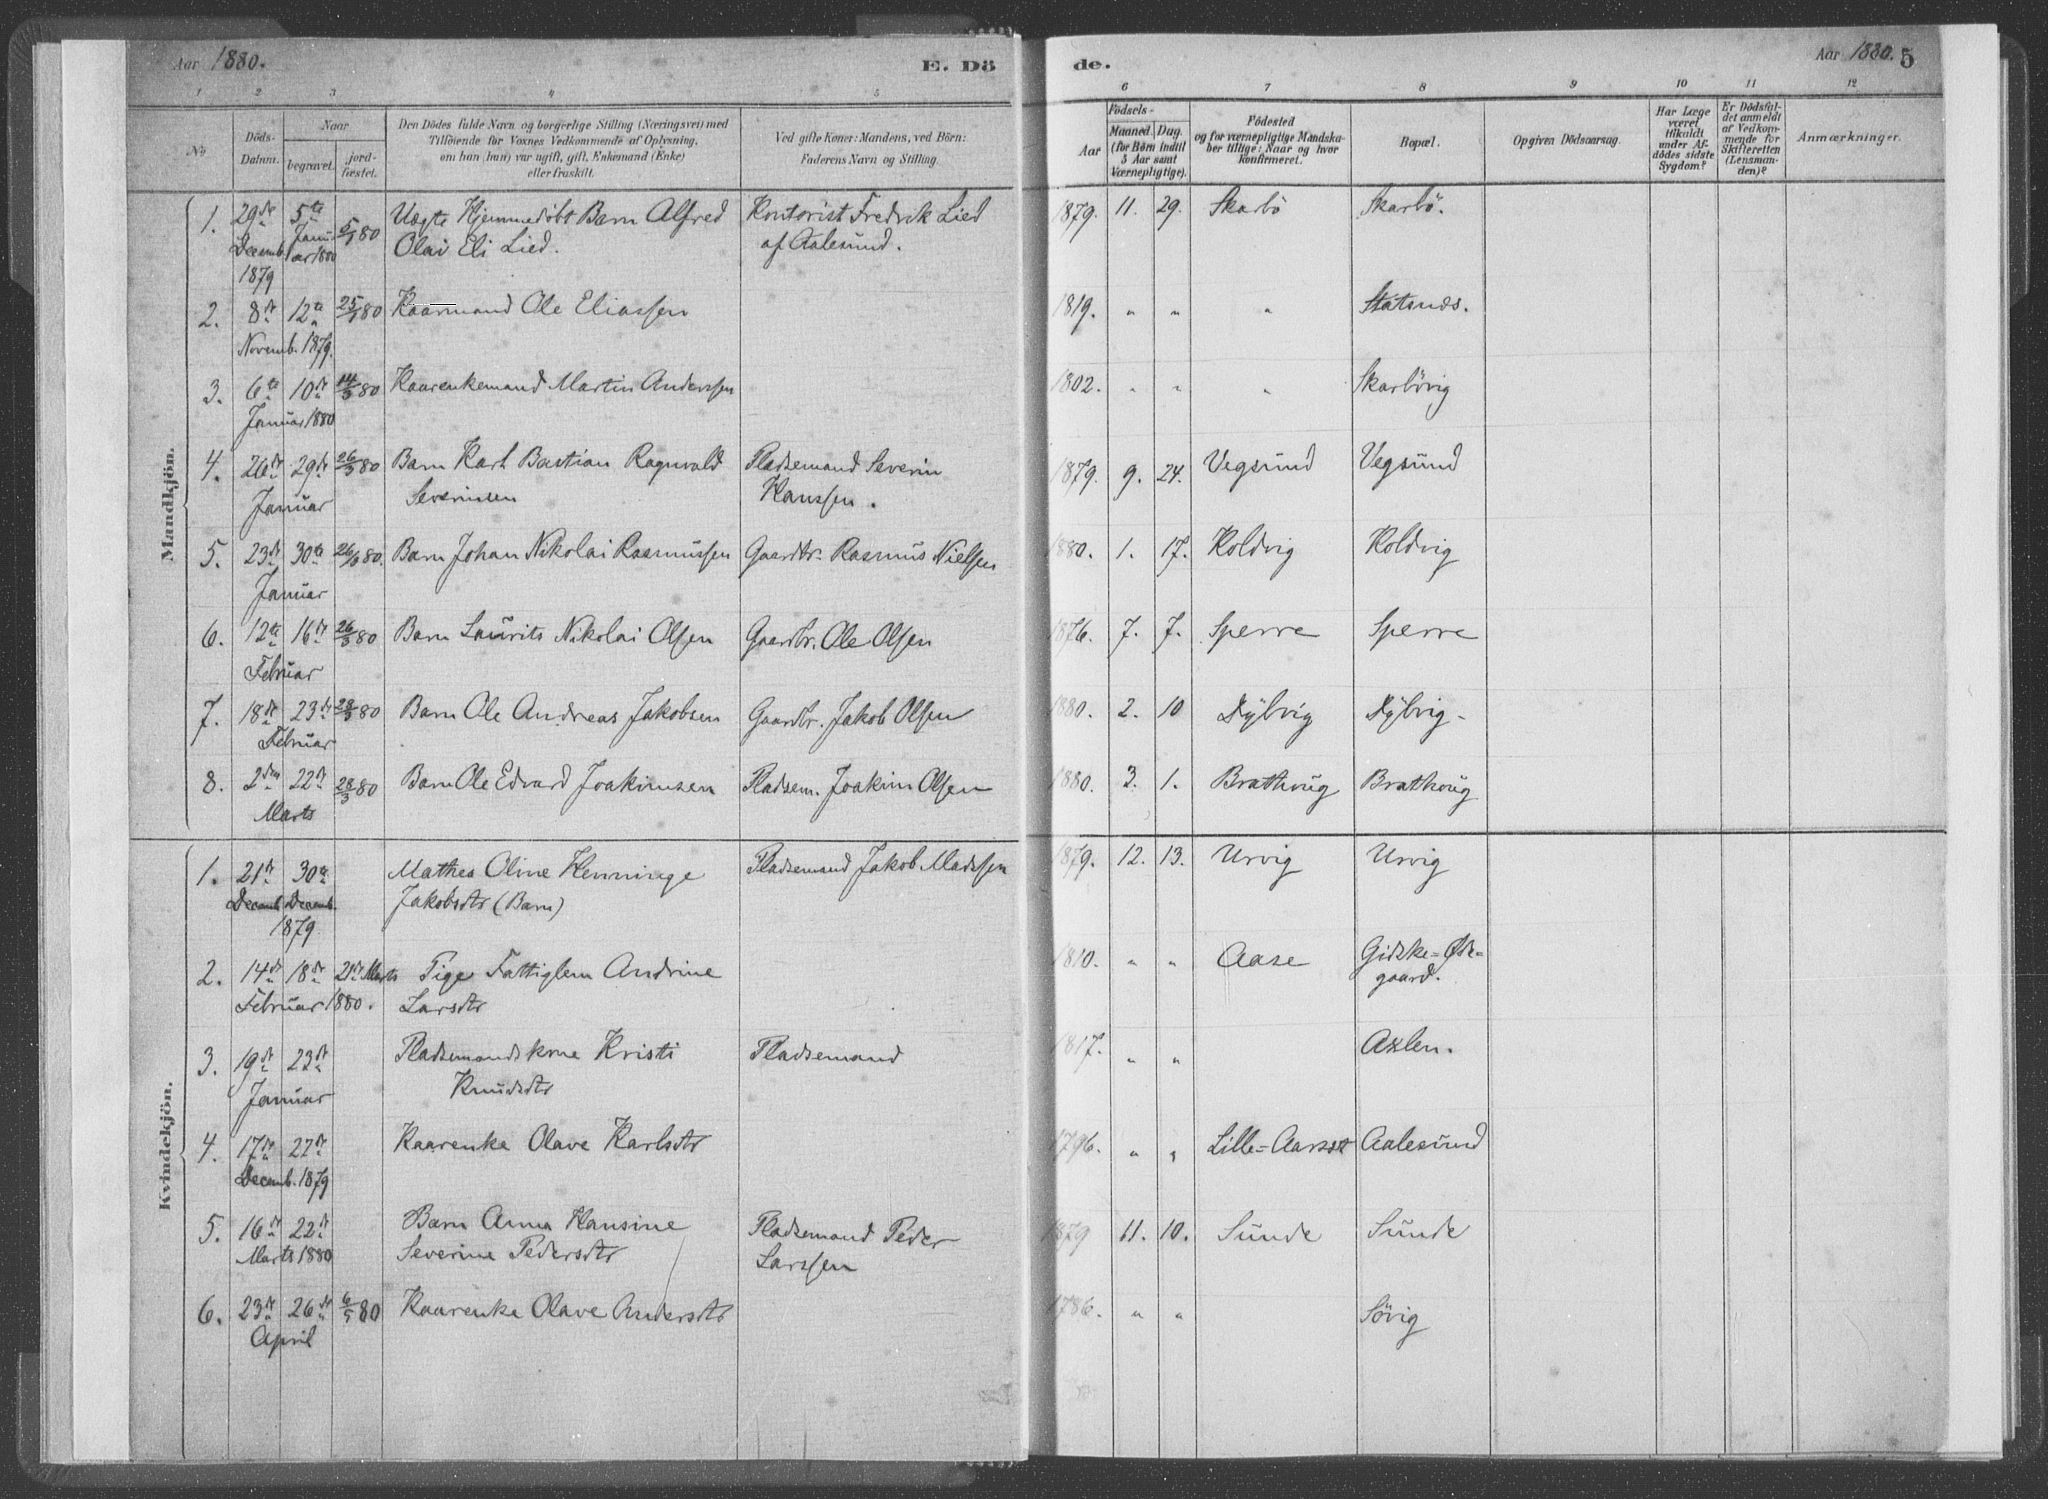 Aar 1880.
E. Dö
de.
Aar 1880. 5
1 2 3 4 5 6 7 8 9 10 11 12
No
Döds-Datum.
Naar
begravet.
jord-fæstet.
Den Dödes fulde Navn og borgerlige Stilling (Næringsvei) med
Tilföiende for Voxnes Vedkommende af Oplysning,
om han (hun) var ugift, gift, Enkemand (Enke)
eller fraskilt.
Ved gifte Koner: Mandens, ved Börn:
Faderens Navn og Stilling.
Födsels-
Aar
Maaned. Dag.
(for Börn indtil
5 Aar samt
Værnepligtige).
Födested
og for værnepligtige Mandska-
ber tillige: Naar og hvor
konfirmeret.
Bopæl.
Opgiven Dödsaarsag.
Har Læge
været
tilkaldt
under Af-
dödes sidste
Sygdom?
Er Dödsfal-
det anmeldt
af Vedkom-
mende for
Skifteretten
(Lensman-
den)?
Anmærkninger.
Mandkjön.
1. 29de 5te 5/1 80 Uægte Hjemmedøbt Barn Alfred Kontorist Fredrik Lied 1879. 11. 29. Skarbö Skarbö.
Decemb. Januar 1880 Olai Eli Lied. af Aalesund.
1879
2. 8de 12te 25/1 80 Kaarmand Ole Eliassen 1819. " " "
Novemb. 1879.
3. 6te 10de 14/3 80 Kaarenkemand Martin Anderssen 1802. " " " Skarbövig
Januar 1880
4. 26de 29de 26/3 80 Barn Karl Bastian Ragnvald Pladsemand Severin 1879. 9. 24. Vegsund Vegsund
Januar Severinsen Hanssen.
5. 23de 30te 26/3 80. Barn Johan Nikolai Rasmussen Gaardbr. Rasmus Nielsen 1880. 1. 17. Koldvig Koldvig
Januar
6. 12te 16de 26/3 80 Barn Laurits Nikolai Olsen Gaardbr. Ole Olsen 1876. 7. 7. Sperre Sperre
Februar
7. 18de 23de 28/3 80 Barn Ole Andreas Jakobsen Gaardbr. Jakob Olsen 1880. 2. 10 Dybvig Dybvig
Februar
8. 2den 22de 28/3 80 Barn Ole Edvard Joakimsen Pladsem. Joakim Olsen 1880. 3. 1. Brathoug Brathoug
Marts
Kvindekjön.
1. 21de 30te Mathea Oline Henninge Pladsemand Jakob Madssen 1879. 12. 13. Urvig Urvig
Decemb. Decemb. Jakobsdtr (Barn)
1879
2. 14de 18de 21de Marts Pige Fattiglem Andrine 1810. " " Aase Gidske=Øde=
Februar 1880. Larsdtr gaard.
3. 19de 23de Pladsemandskone Kristi Pladsemand 1817. " " Axlen.
Januar Knudsdtr
4. 17de 27de Kaarenke Olave Karlsdtr 1796. " " Lille= Aalesund
Decemb. 1879
5. 16de 22de Barn Anna Hansine Pladsemand Peder 1879 11. 10. Sunde Sunde
Marts 1880 Severine Pedersdtr Larssen
6. 23de 26de 6/5 80 Kaarenke Olave Andersdtr 1786. " " Sövig
April